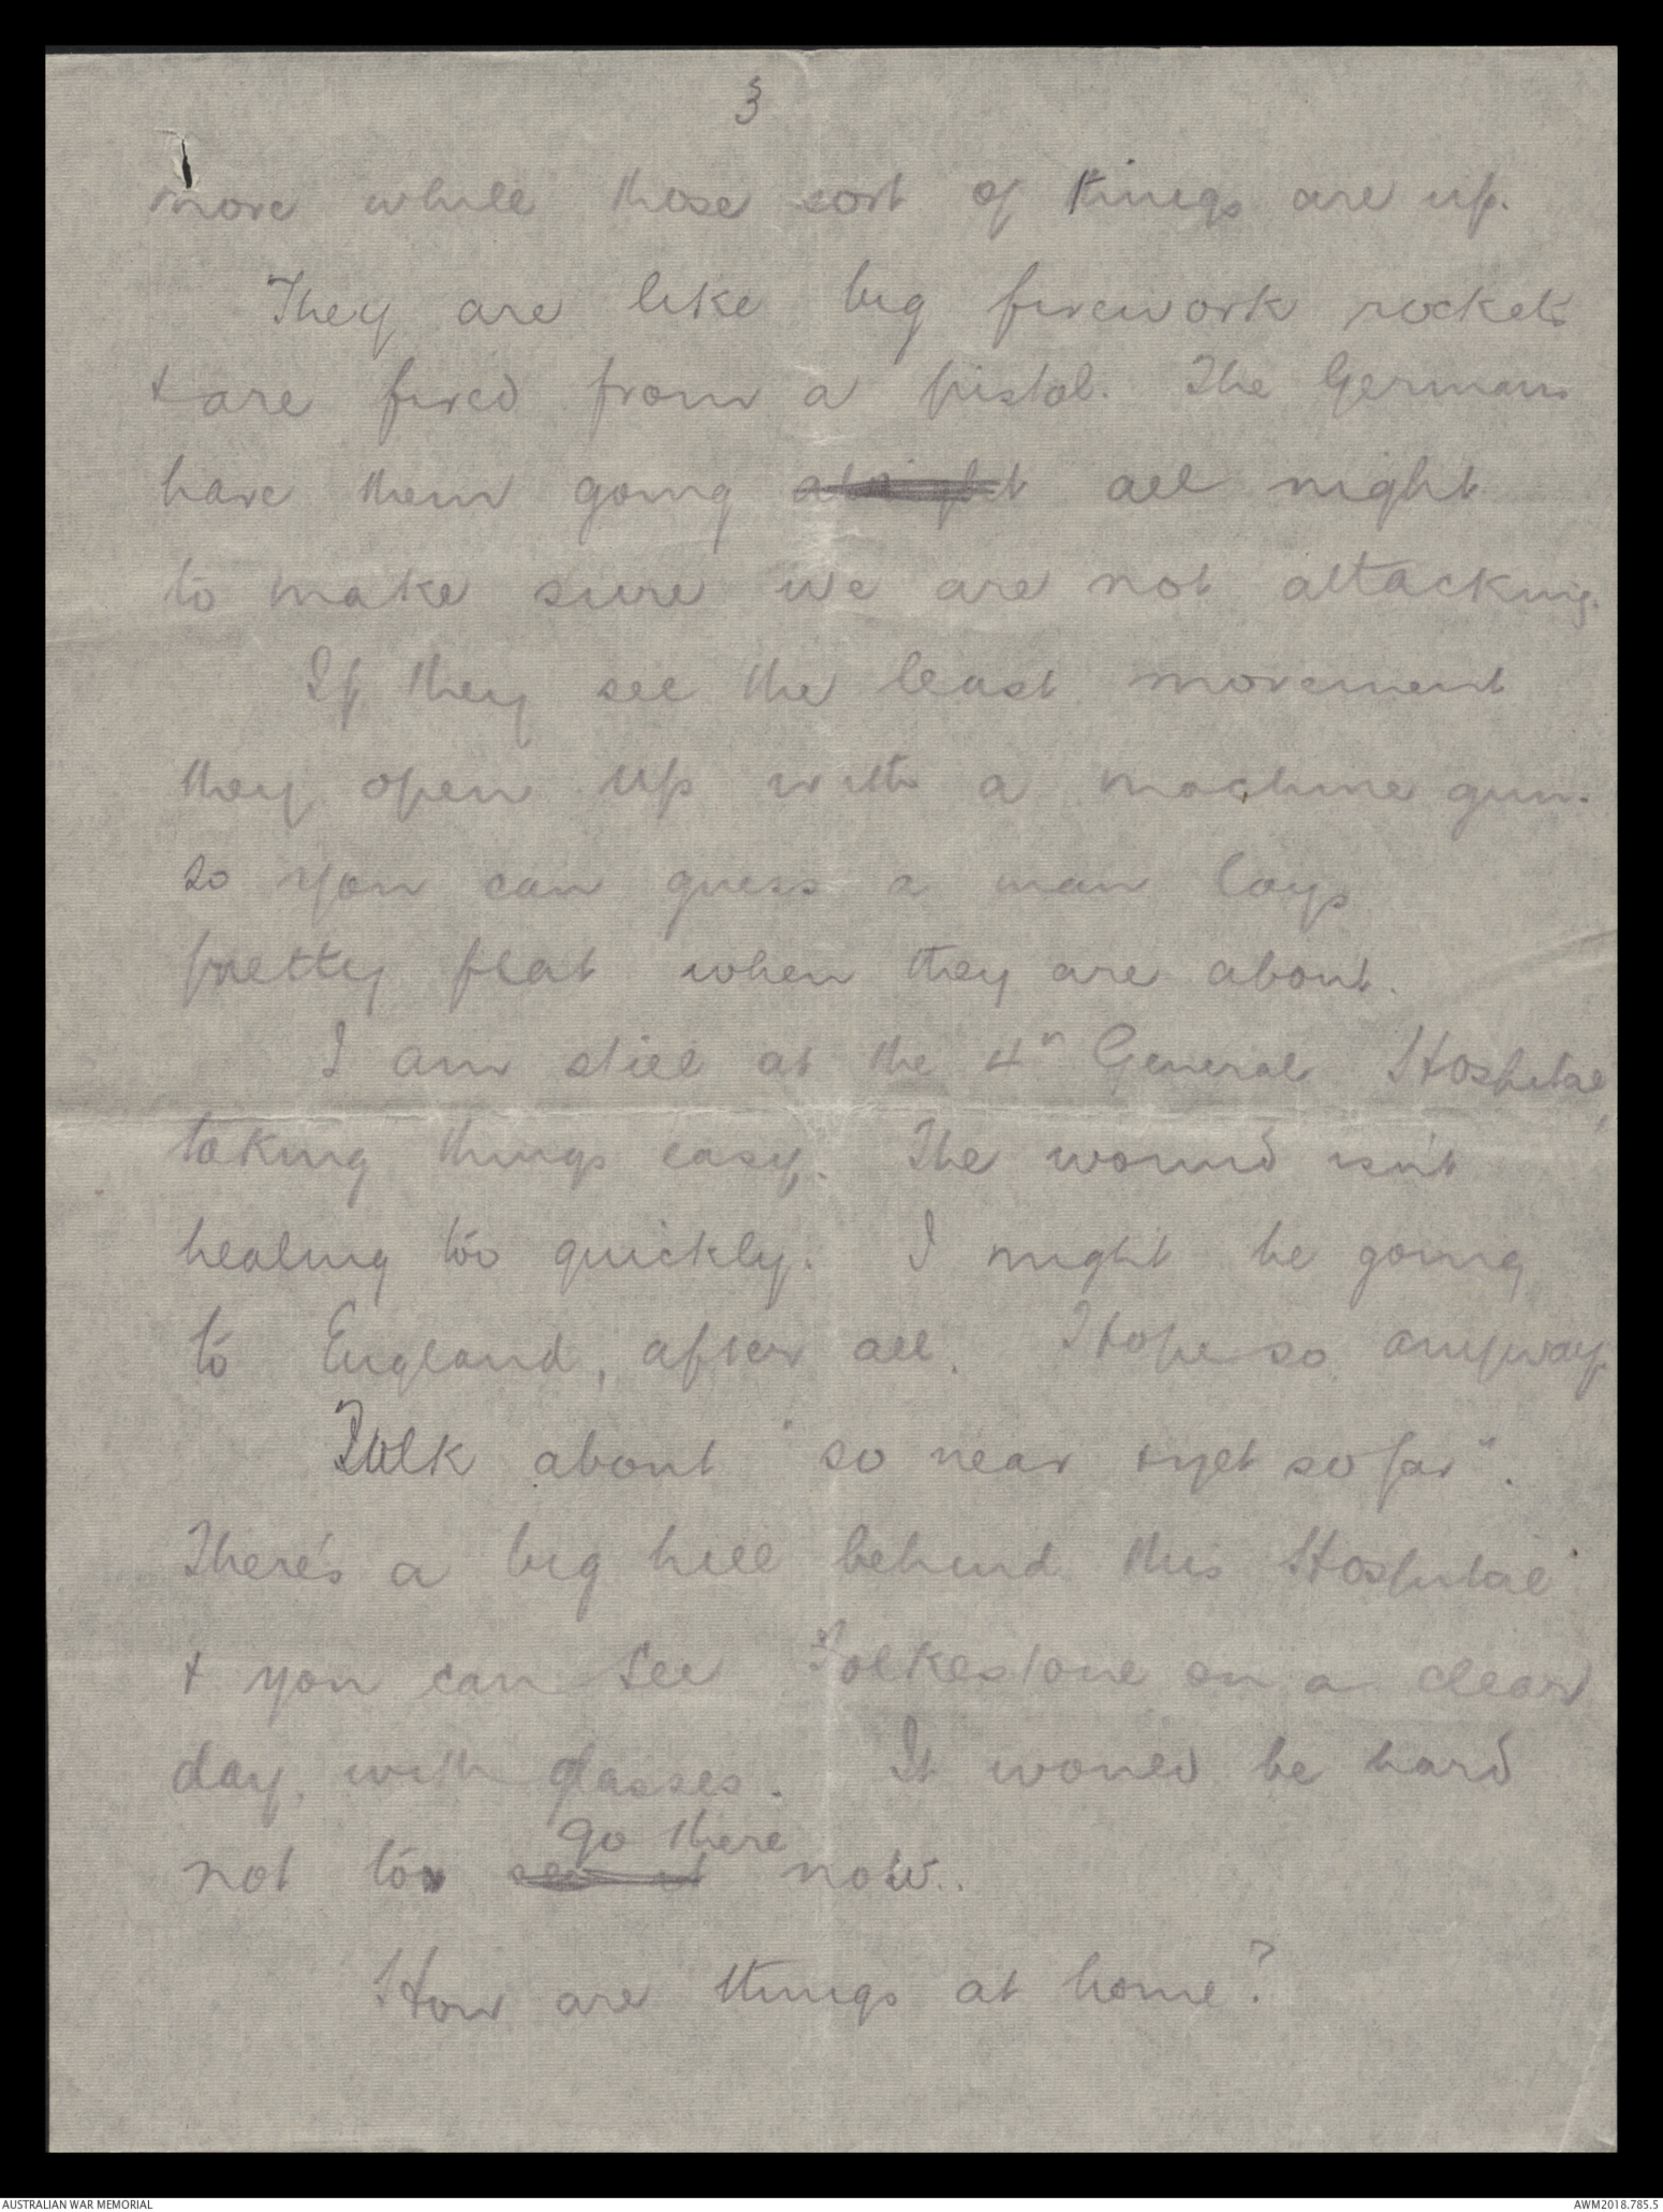 3
move while those sort of things are up.
They are like big firework rockets
& are fired from a pistol. The Germans
have them going all night
to make sure we are not attacking.
If they see the least movement
they open up with a machine gun.
so you can guess a man lays
pretty flat when they are about.
I am still at the 4th General Hospital,
taking things easy. The wound isn't
healing too quickly. I might be going
to England, after all. I hope so anyway
Talk about "so near & yet so far".
There's a big hill behind this Hospital
& you can see Folkestone on a clear
day, with glasses. It would be hard
go there
not to now.
How are things at home?
AUSTRALIAN WAR MEMORIAL
AWM2018.785.5